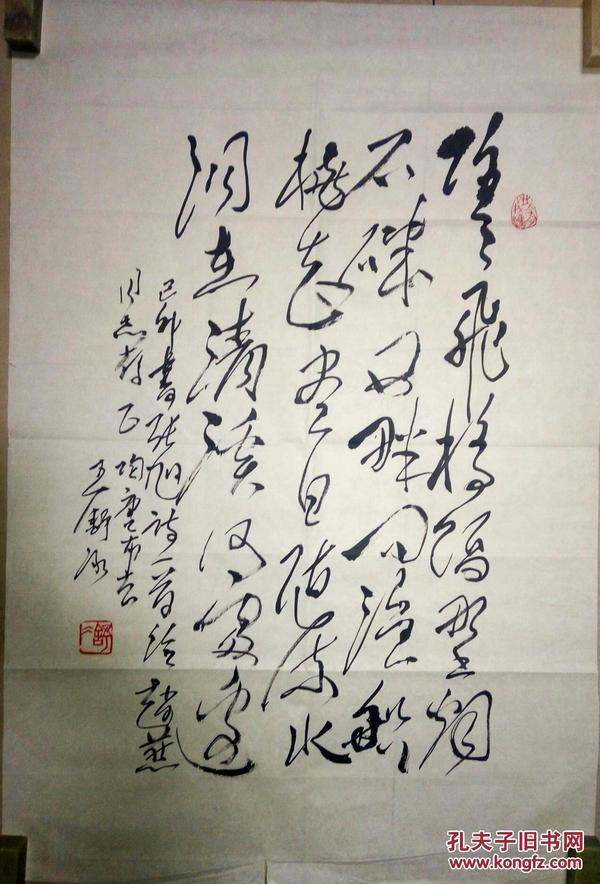 隐隐飞桥隔野烟
石矶西畔问渔船
桃花尽日随流水
洞在清溪何处边
己卯书张旭诗一首给赵燕
同志存正
王舒冰
孔夫子旧书网
www.kongfz.com